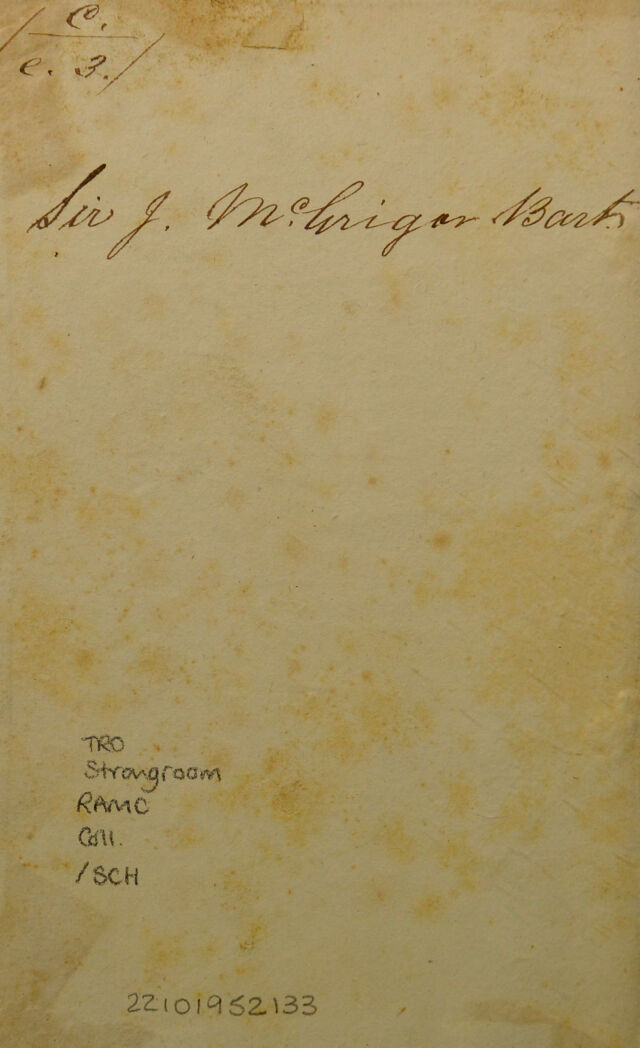 /C.
e. 3./
Sir J. McGrigor Bart.
TRO
Strongroom
RAMC
Coll.
/SCH
22101952133